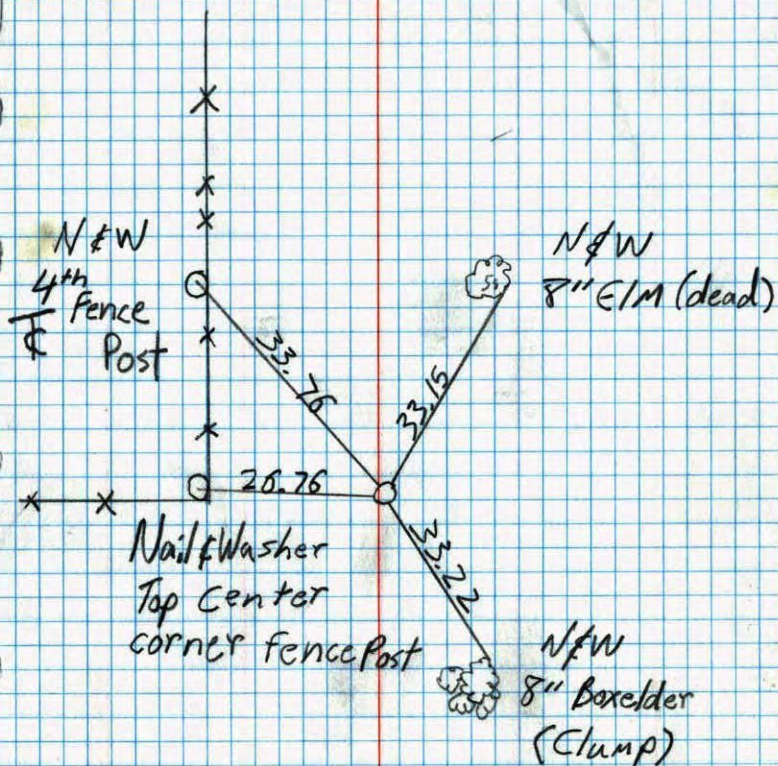 N & W
4th Fence
T ¢ Post
N & W
8" Elm (dead)
33.76
33.15
26.76
Nail & Washer
Top Center
corner fence Post
33.22
N & W
8" Boxelder
(Clump)